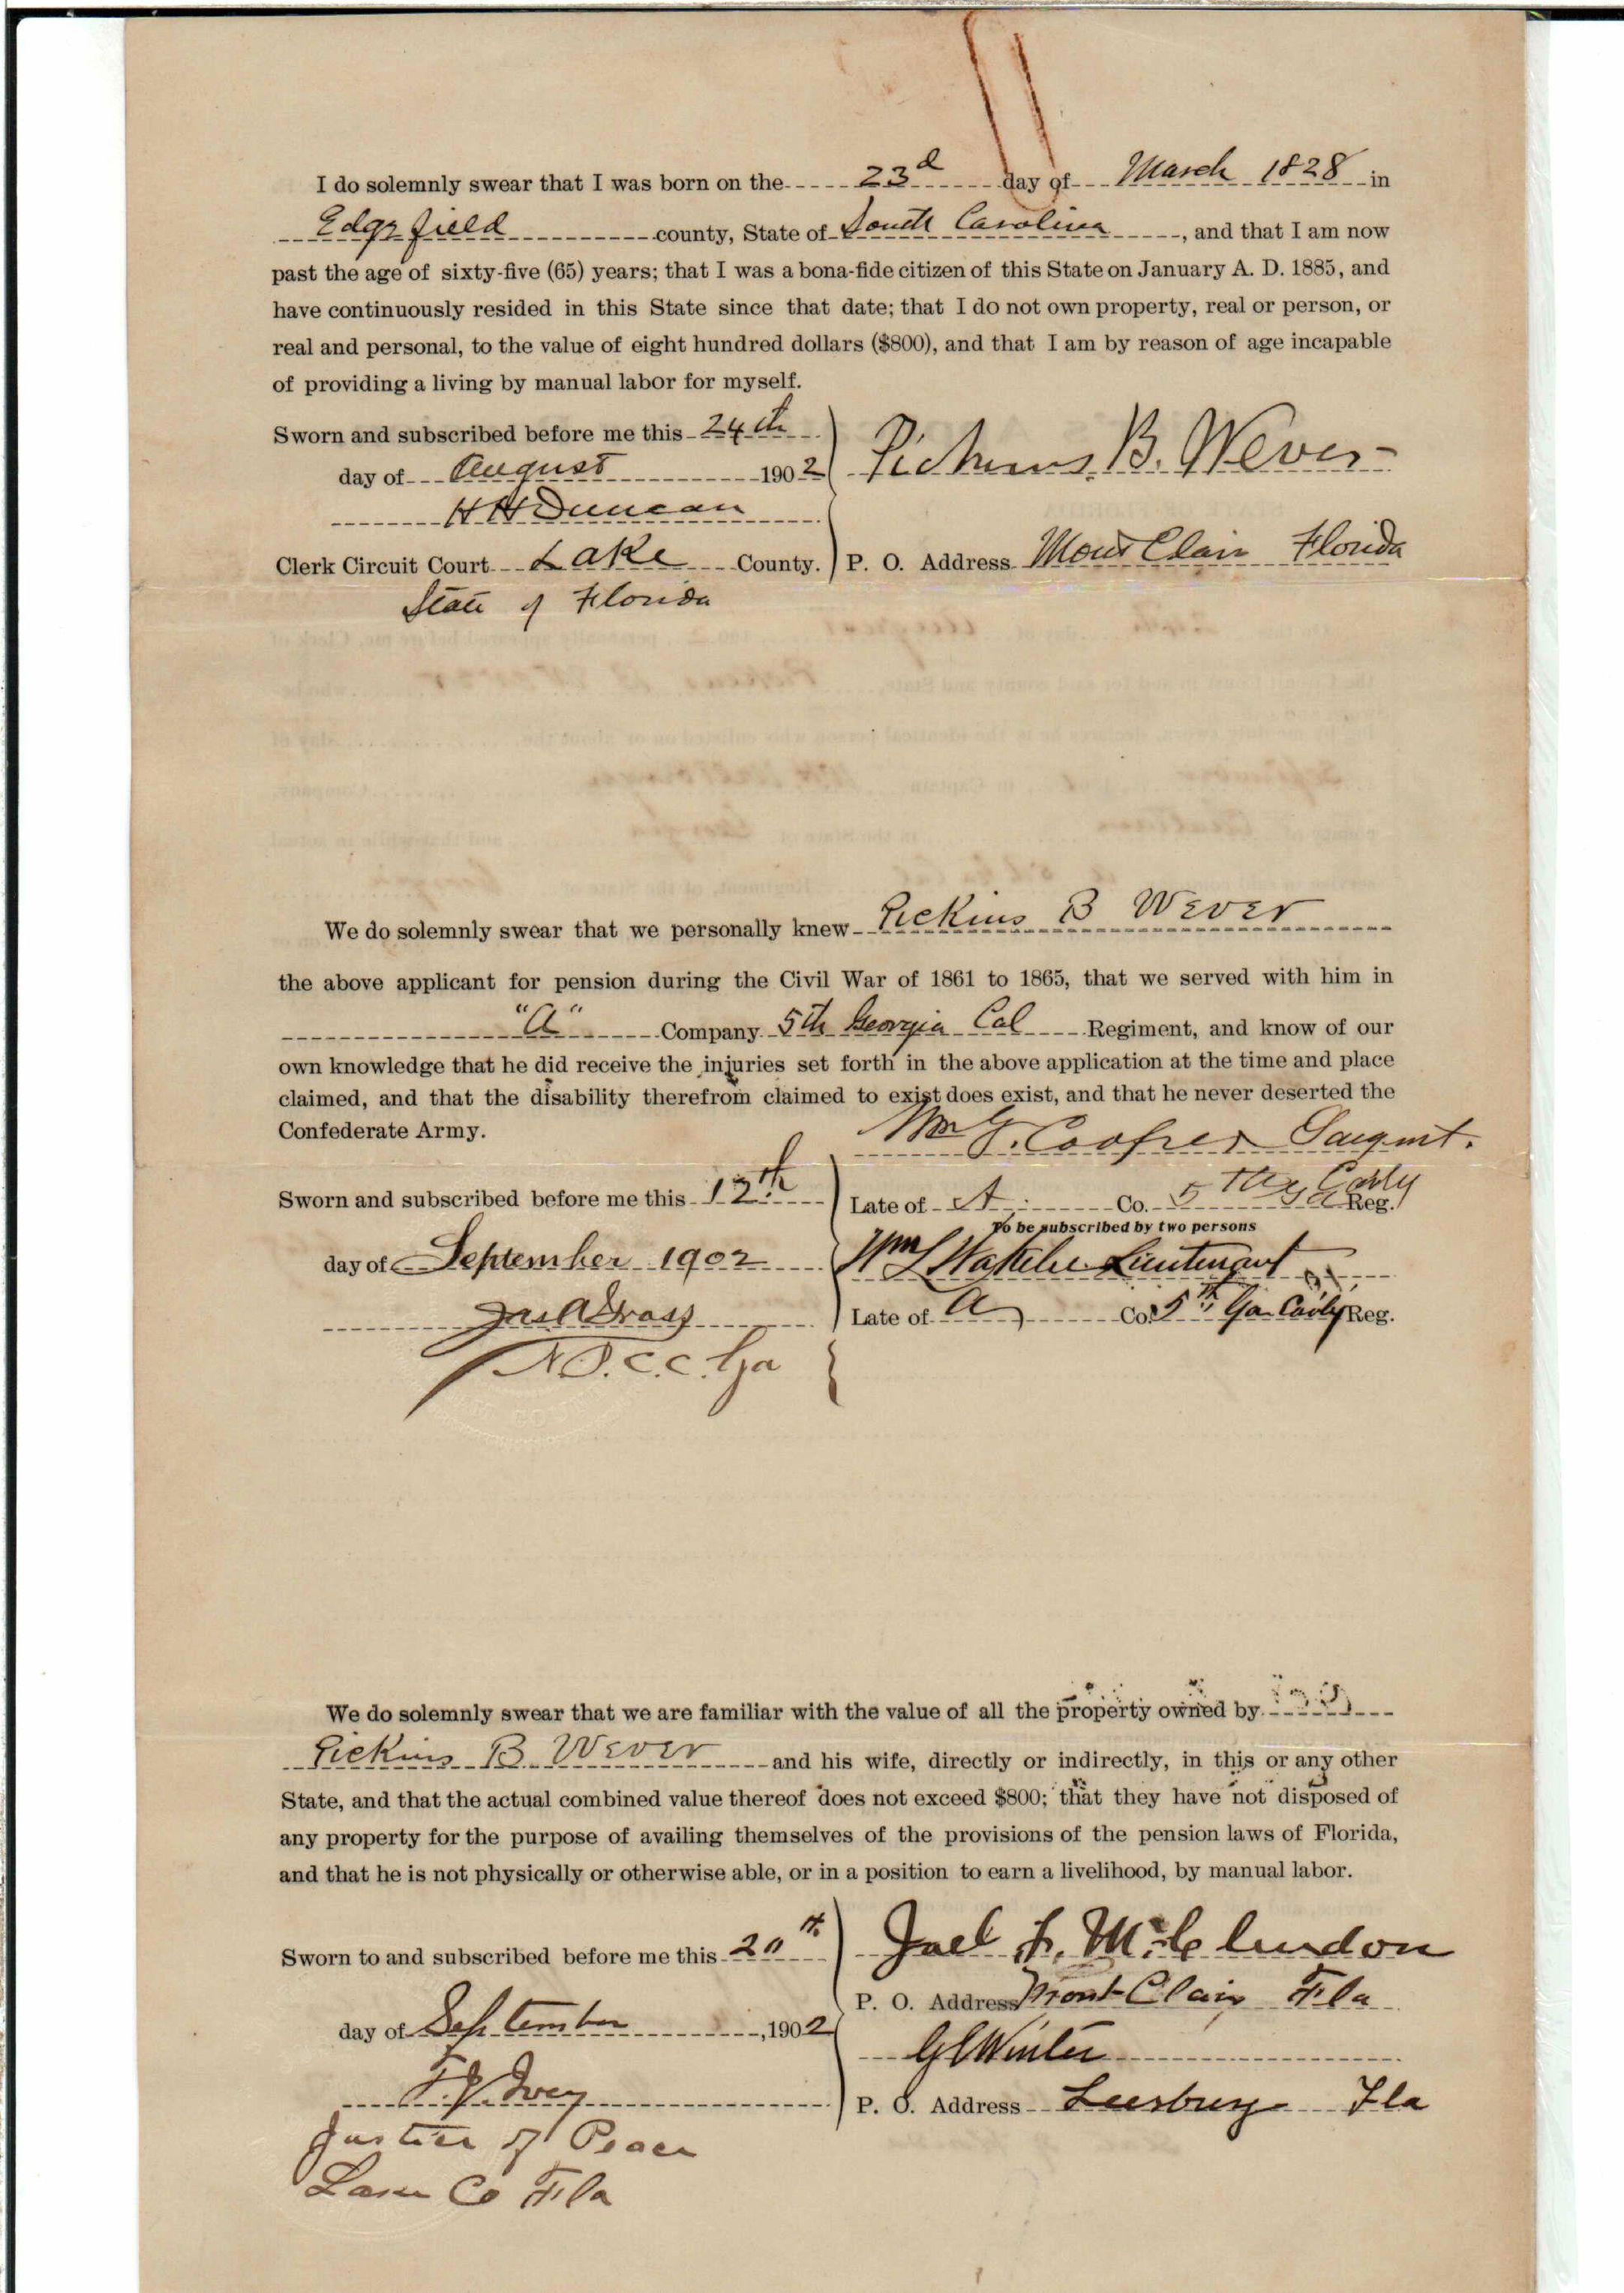 I do solemnly swear that I was born on the 23d day of March 1828 in
Edgefield county, State of South Carolina, and that I am now
past the age of sixty-five (65) years; that I was a bona-fide citizen of this State on January A. D. 1885, and
have continuously resided in this State since that date; that I do not own property, real or person, or
real and personal, to the value of eight hundred dollars ($800), and that I am by reason of age incapable
of providing a living by manual labor for myself.
Sworn and subscribed before me this 24th
day of August 1902
Pickens B. Wever
H H Duncan
Clerk Circuit Court Lake County.
P. O. Address Mont Clair Florida
State of Florida
We do solemnly swear that we personally knew Pickins B Wever
the above applicant for pension during the Civil War of 1861 to 1865, that we served with him in
"A" Company 5th Georgia Cal Regiment, and know of our
own knowledge that he did receive the injuries set forth in the above application at the time and place
claimed, and that the disability therefrom claimed to exist does exist, and that he never deserted the
Confederate Army.
Wm G. Cooper
Sworn and subscribed before me this 12th
Late of A Co. 5th Ga Cavly Reg.
To be subscribed by two persons
day of September 1902
Wm L Lieutenant
Late of A Co. 5th Ga Cavly Reg.
N.P.C.C. Ga
We do solemnly swear that we are familiar with the value of all the property owned by
Pickins B Wever and his wife, directly or indirectly, in this or any other
State, and that the actual combined value thereof does not exceed $800; that they have not disposed of
any property for the purpose of availing themselves of the provisions of the pension laws of Florida,
and that he is not physically or otherwise able, or in a position to earn a livelihood, by manual labor.
Sworn to and subscribed before me this 20th
Joel F. McClendon
P. O. Address Mont Clair Fla
day of September, 1902
G C Winter
F. J. Ivey
P. O. Address Leesburg Fla
Justice of Peace
Lake Co Fla